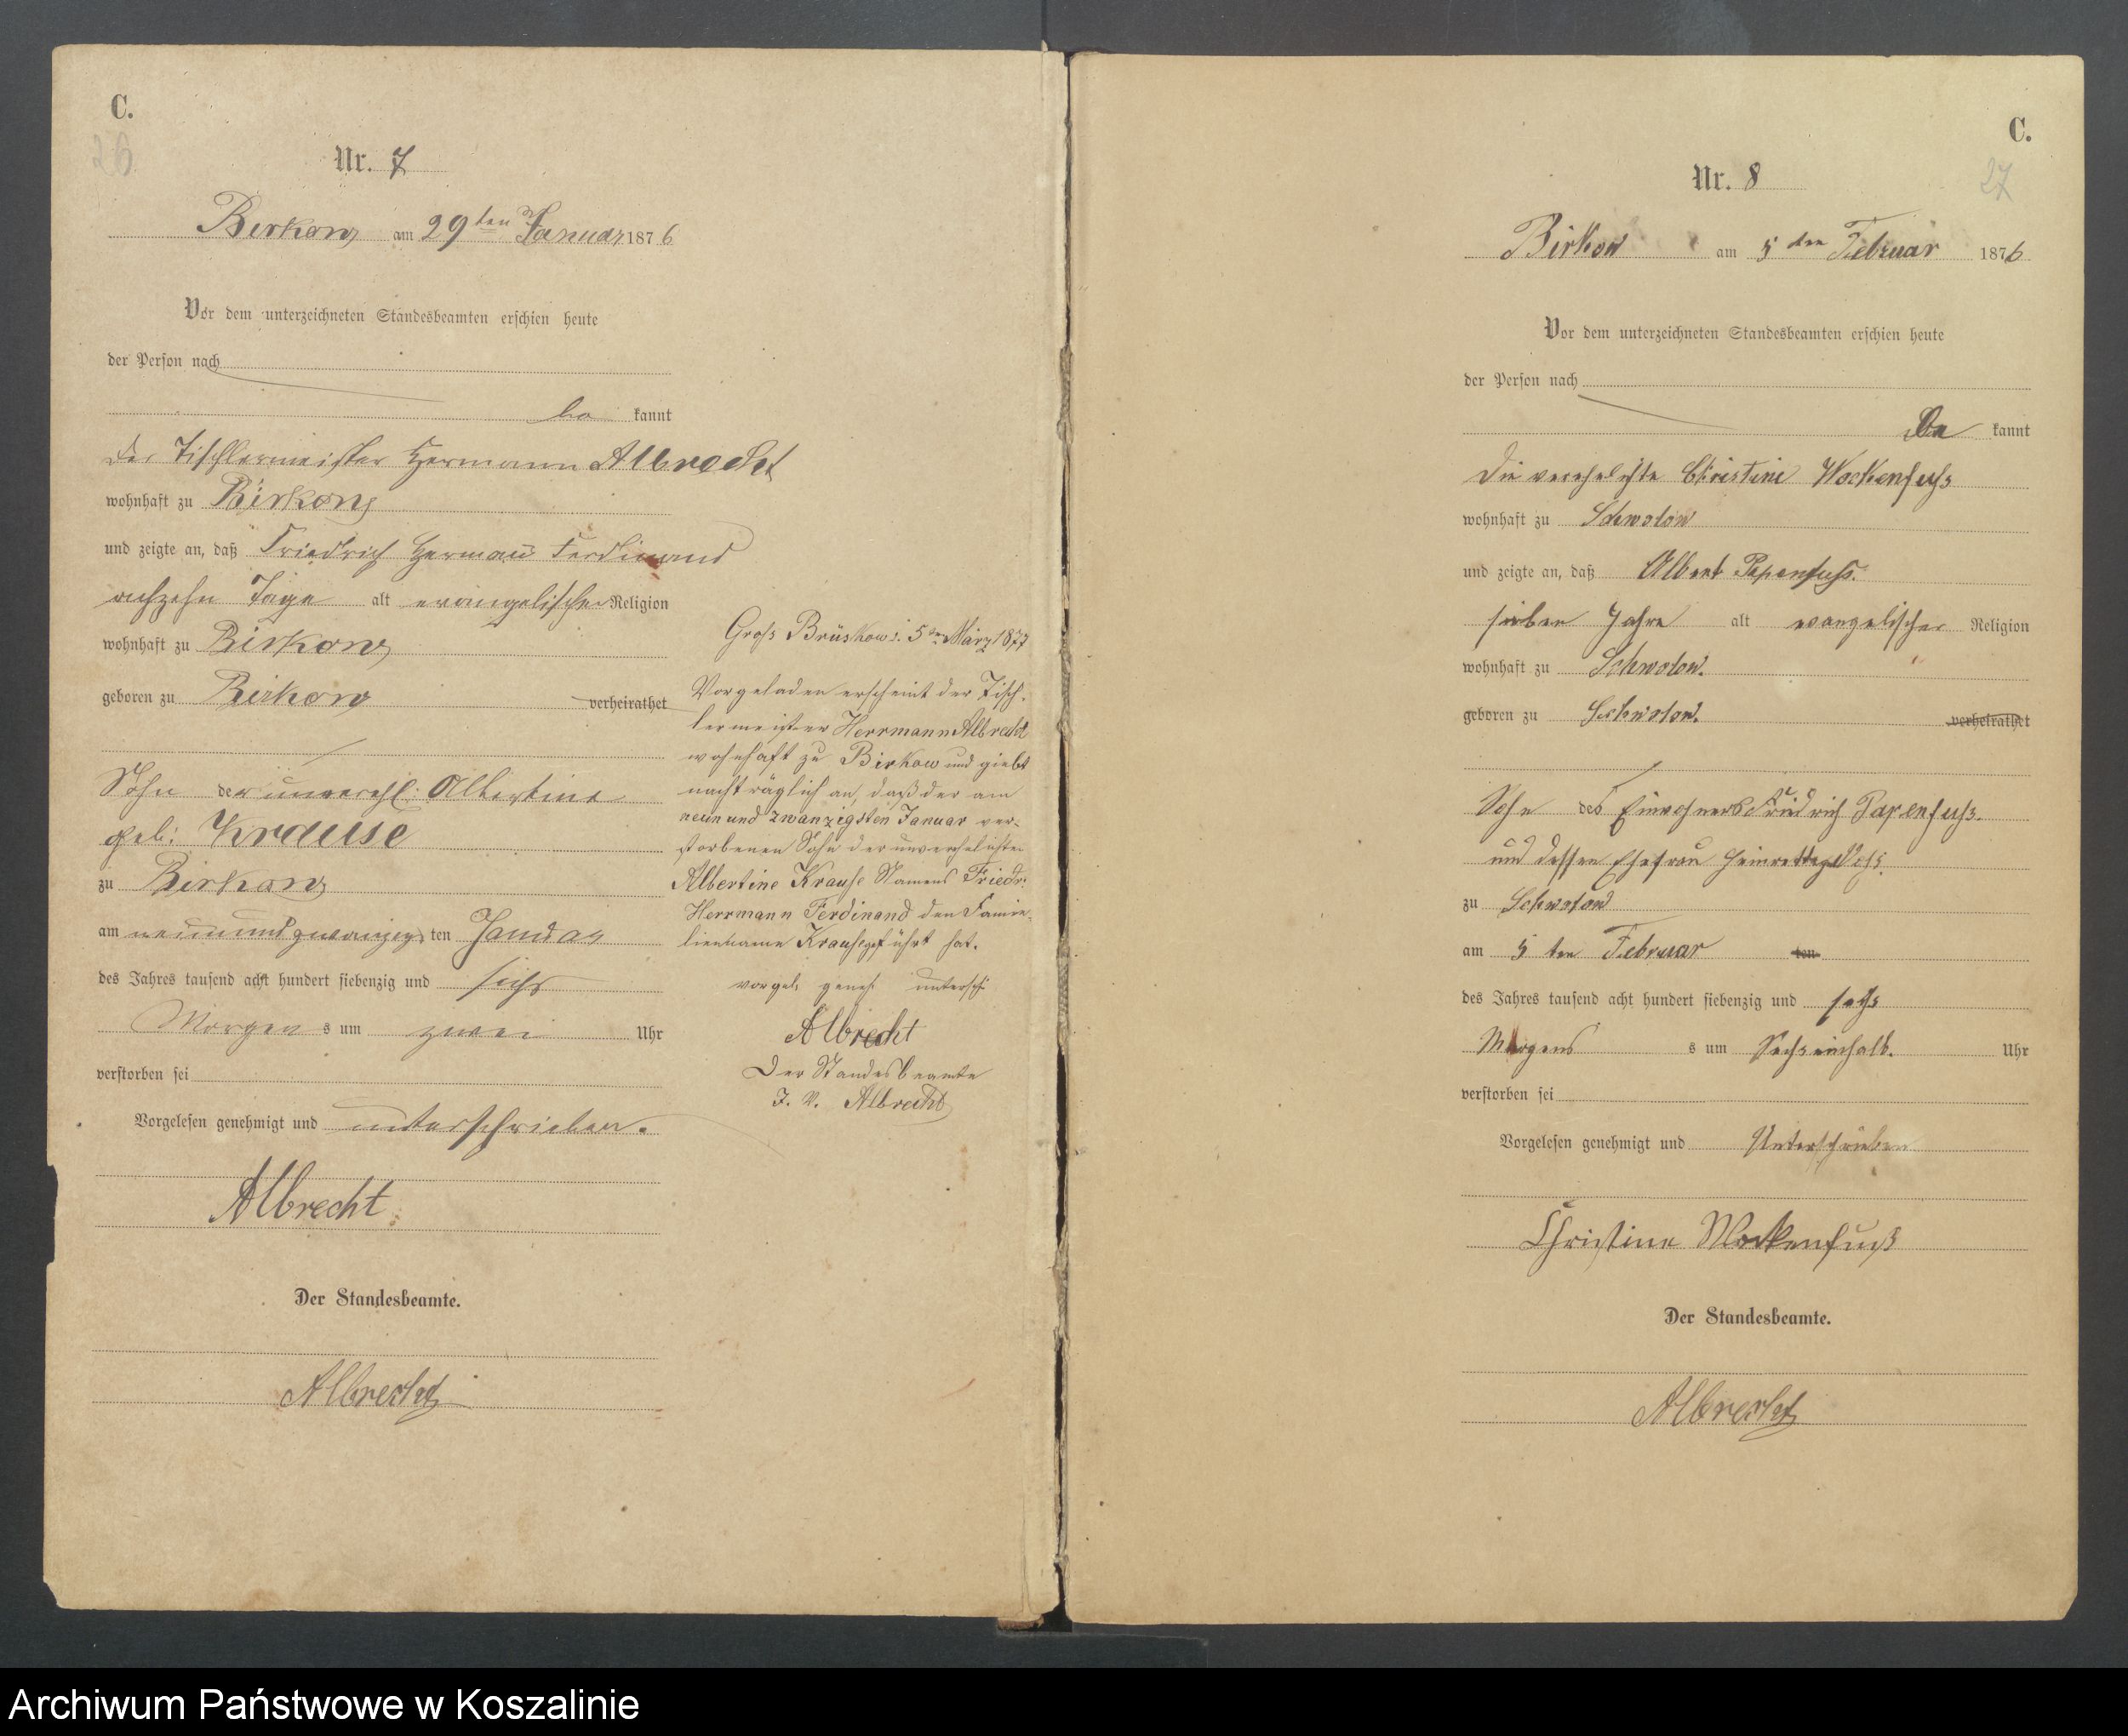 C.
26
Nr. 7
Birkow am 29ten Januar 1876
Vor dem unterzeichneten Standesbeamten erschien heute
der Person nach
be kannt
der Tischlermeister Hermann Albrecht
wohnhaft zu Birkow
und zeigte an, daß Friedrich Herman Ferdinand
achzehn Tage alt evangelischer Religion
wohnhaft zu Birkow
geboren zu Birkow verheirathet
Sohn der unverehl: Albertine
geb: Krause
zu Birkow
am neunundzwanzigs ten Januar
des Jahres tausend acht hundert siebenzig und sechs
Morgen s um zwei Uhr
verstorben sei
Vorgelesen genehmigt und unterschrieben.
Albrecht
Der Standesbeamte.
Albrecht
Gross Brüskow d. 5ten März 1877
Vorgeladen erscheint der Tisch-
lermeister Herrmann Albrecht
wohnhaft zu Birkow und giebt
nachträglich an, daß der am
neunundzwanzigsten Januar ver-
storbenen Sohn der unverehelichten
Albertine Krause Namens Friedr:
Herrmann Ferdinand den Famie-
lienname Krause geführt hat.
vorgel. geneh. untersch
Albrecht
Der Standesbeamte
J. V. Albrecht
C.
27
Nr. 8
Birkow am 5ten Februar 1876
Vor dem unterzeichneten Standesbeamten erschien heute
der Person nach
be kannt
Die verehelichte Christine Wockenfuss
wohnhaft zu Schwolow
und zeigte an, daß Albert Papenfuss.
sieben Jahre alt evangelischer Religion
wohnhaft zu Schwolow.
geboren zu Schwolow. verheirathet
Sohn des Einwohners Friedrich Papenfuss.
und dessen Ehefrau
zu Schwolow
am 5 ten Februar ten
des Jahres tausend acht hundert siebenzig und sechs
Morgens s um Sechseinhalb. Uhr
verstorben sei
Vorgelesen genehmigt und Unterschrieben
Christine Wockenfuß
Der Standesbeamte.
Albrecht
Archiwum Państwowe w Koszalinie